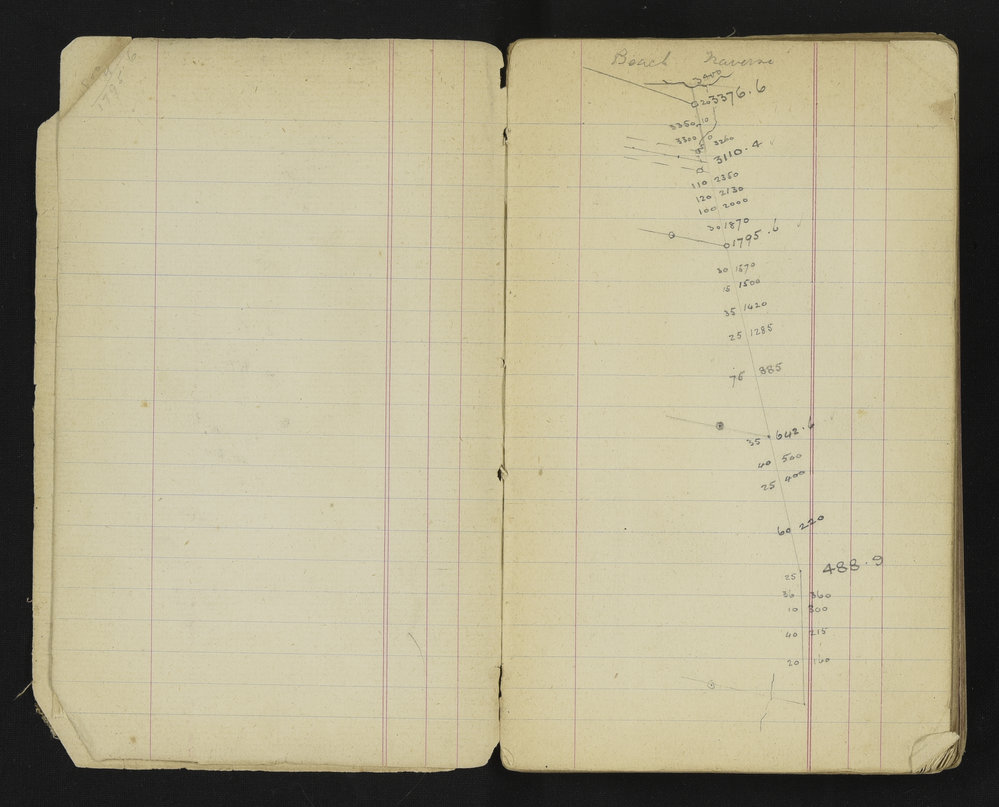 Beach Traverse
3400
20 3376.6
3350 10
3300 0 3260
3110.4
110 2350
120 2130
100 2000
30 1870
1795.6
30 1570
15 1500
35 1420
25 1285
75 885
35 642.6
40 500
25 400
60 220
488.9
25
36 360
10 300
40 215
20 160